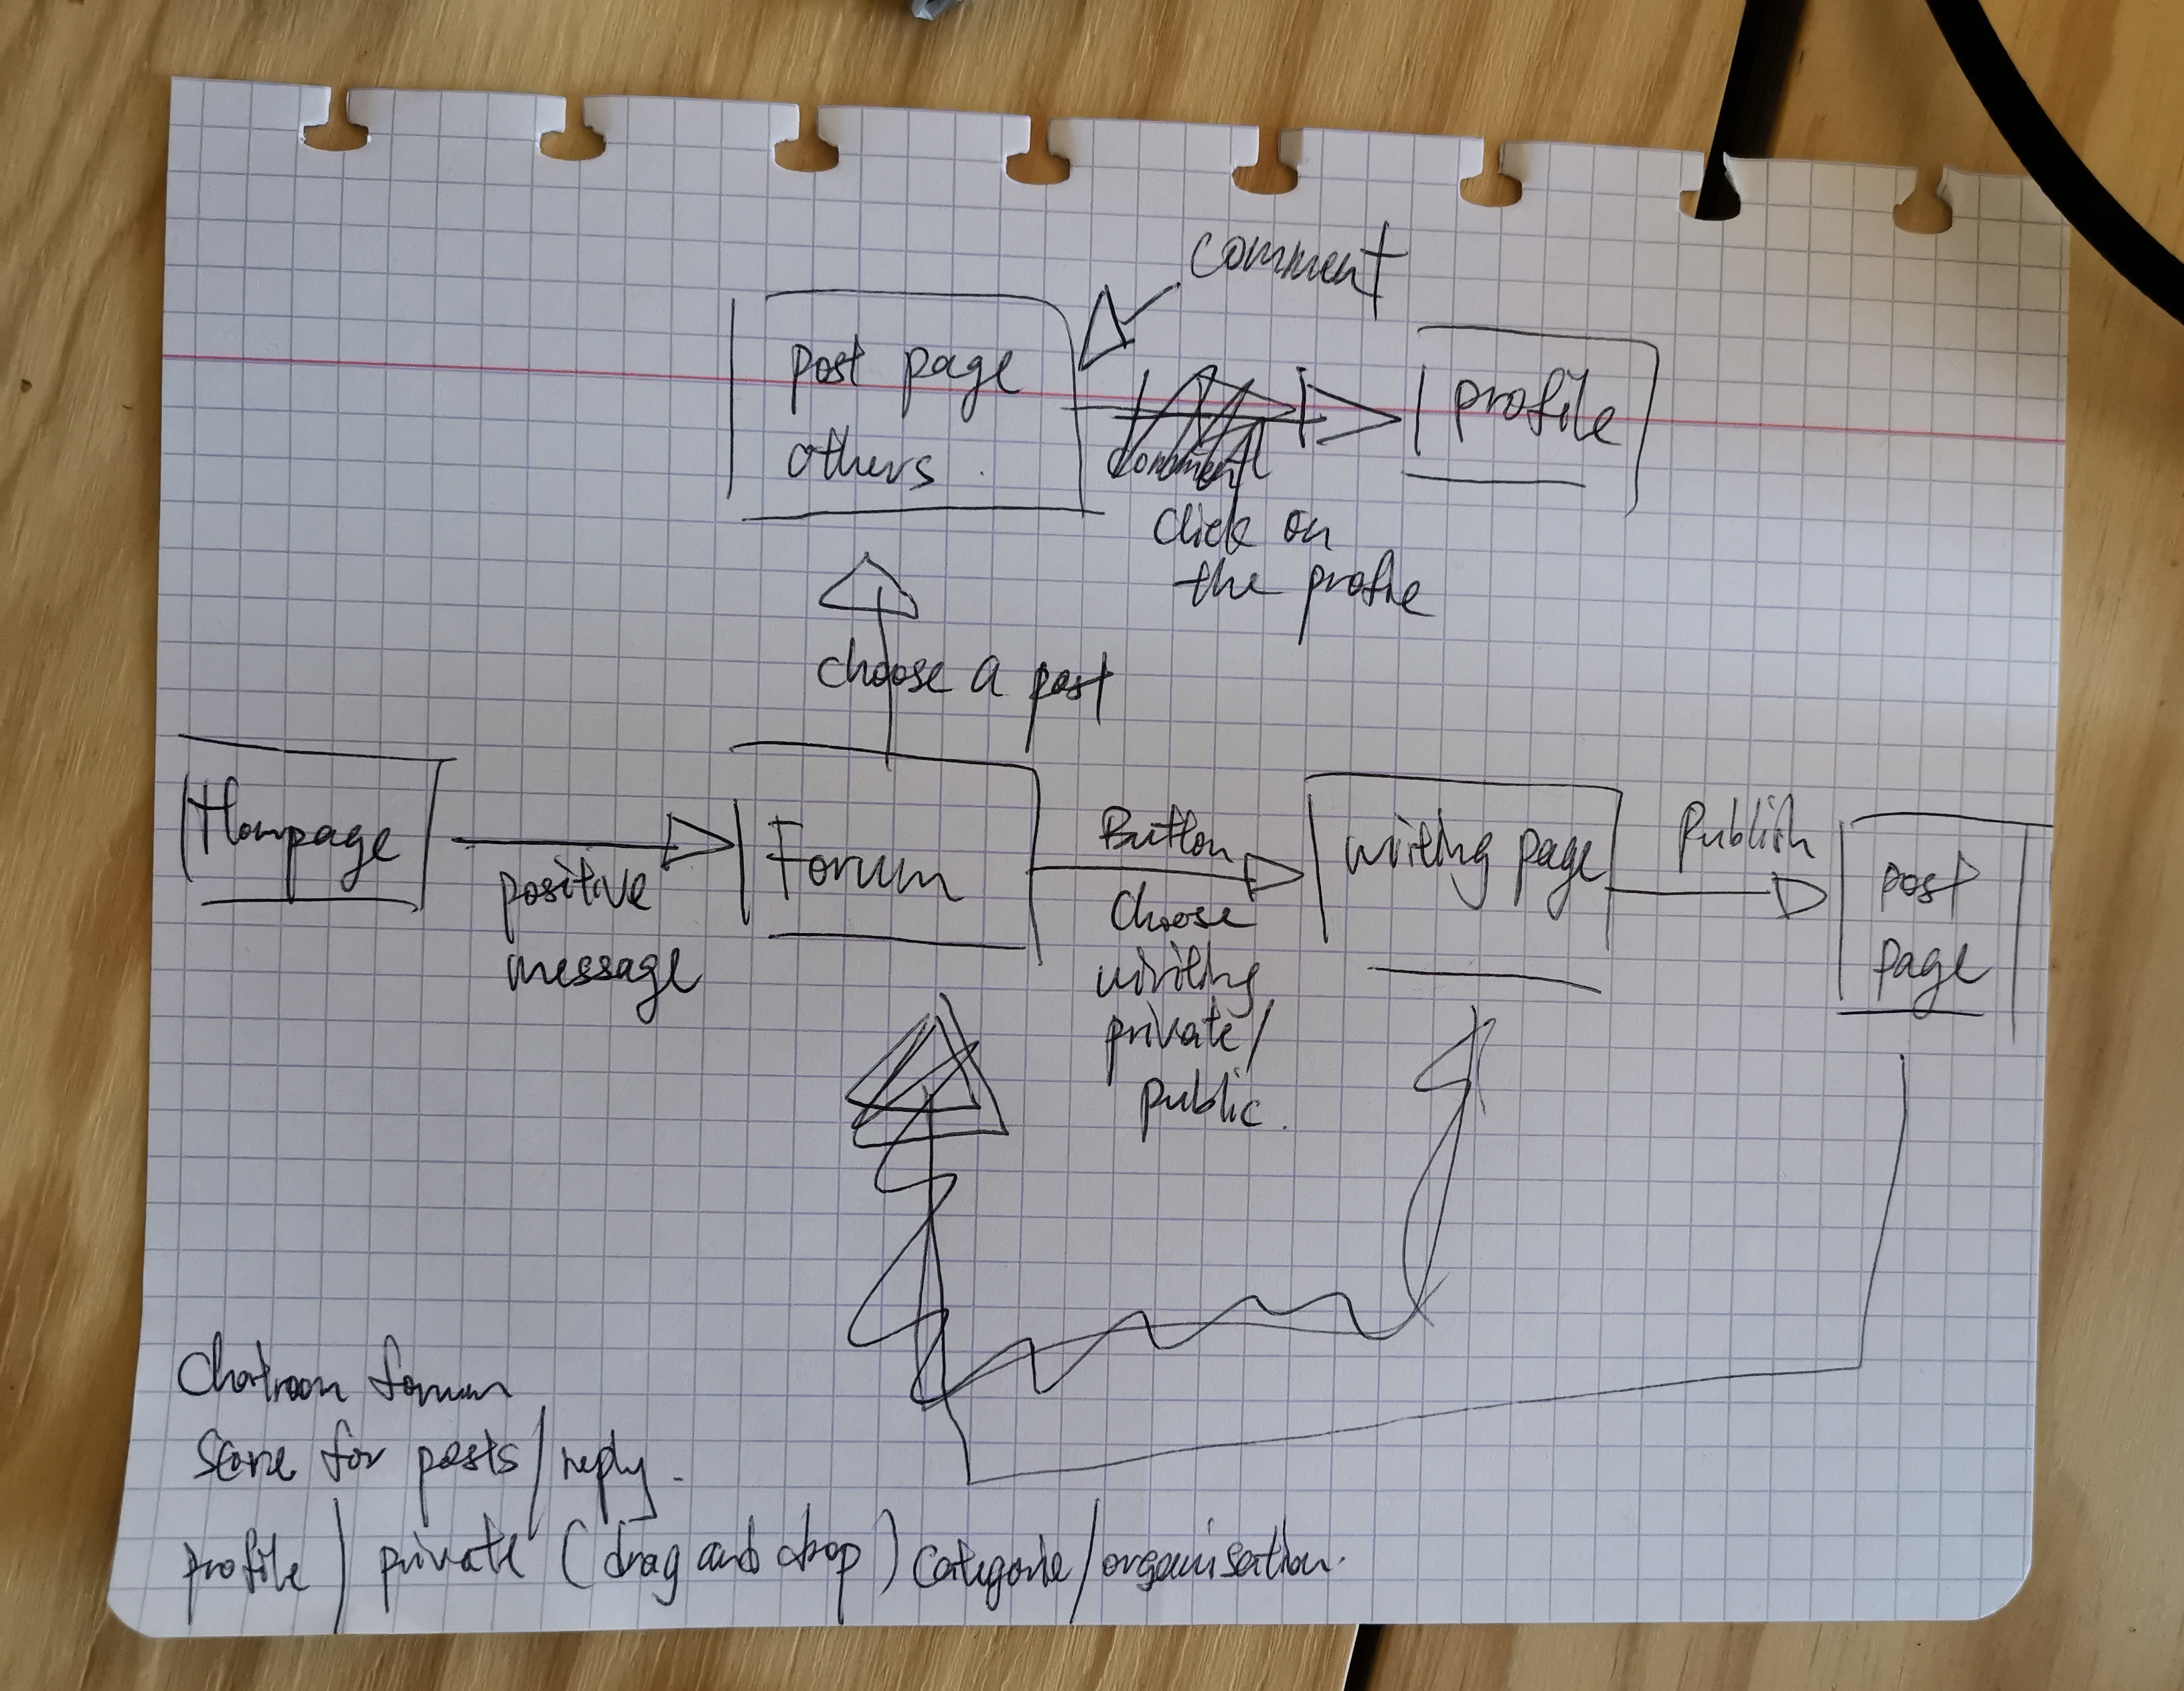 comment
post page
others.
profile
comment
click on
the profile
choose a post
Hompage
positive
message
Forum
Button
Choose
writing
private/
public.
writing page
Publish
post
page
Chatroom forum
Score for posts/reply.
profile/private (drag and drop) categorie/organisation.